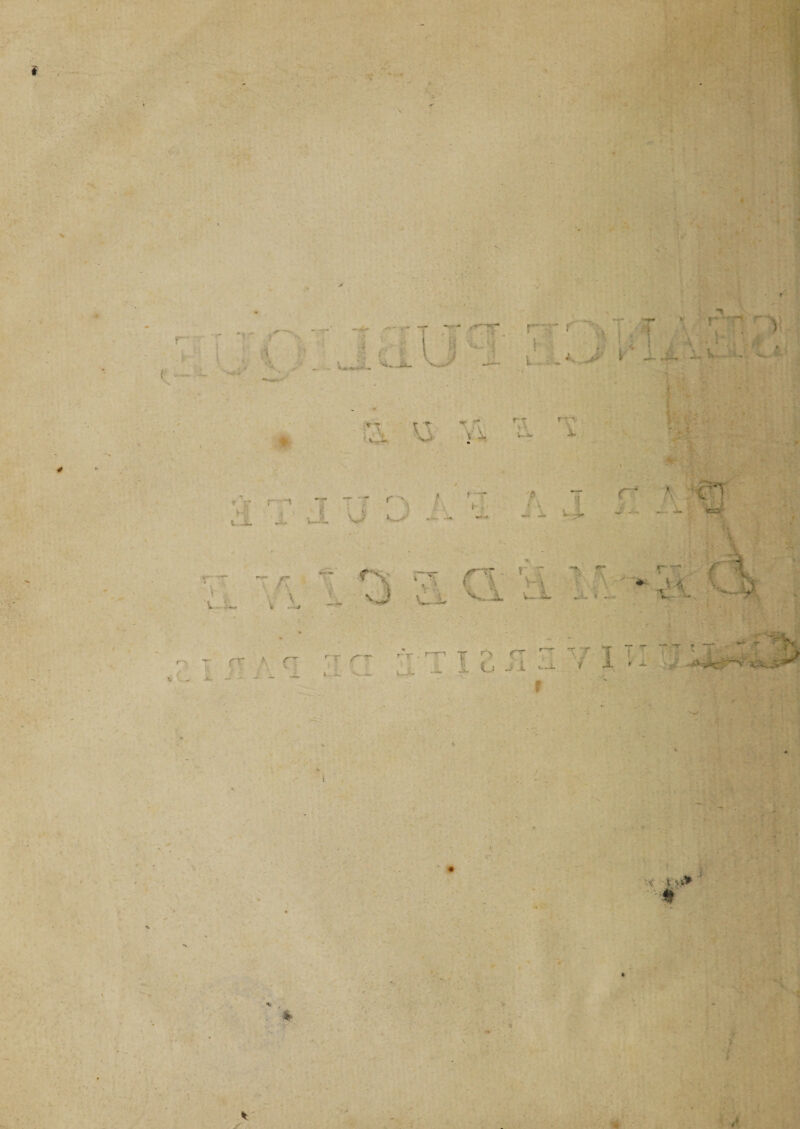 SÉANCE PUBLIQUE
TENUE
PAR LA FACULTÉ
DE MÉDECINE
DE L'UNIVERSITÉ DE PARIS,